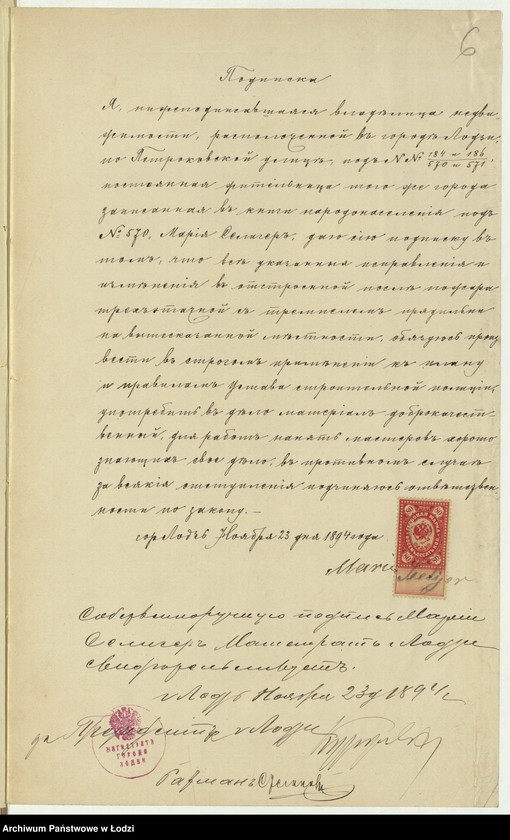 6
Подписка
Я, нижеподписавшаяся владѣлица недви-
жимости, расположенной въ городѣ Лодзи,
по Петроковской улицѣ, подъ N Nº 184 – 186
570 – 571,
постоянная жительница того же города
записанная въ книги народонаселенія подъ
№ 570, Марія Селигеръ, даю сію подписку въ
томъ, что всѣ указанныя исправленія и
измѣненія въ отстроенной послѣ пожара
трехэтажной съ прядильнѣ
на вышесказанной мѣстности, обязуюсь произ-
вести въ строгомъ примѣненіи къ плану
и правиламъ Устава строительной полиціи,
употребить въ дѣло матеріалъ доброкачест-
венной, для работъ нанять мастеровъ хорошо
знающихъ свое дѣло, въ противномъ случаѣ
за всякія отступленія подчиняюсь отвѣтствен-
ности по закону. –
гор. Лодзь Ноября 23 дня 1894 года
80 80
Собственноручную подпись Маріи
Селигеръ Магистратъ г. Лодзи
свидѣтельствуетъ.
г. Лодзь Ноября 23 д 1894 г.
Президентъ г. Лодзи
МАГИСТРАТА
ГОРОДА
ЛОДЗИ
Archiwum Państwowe w Łodzi